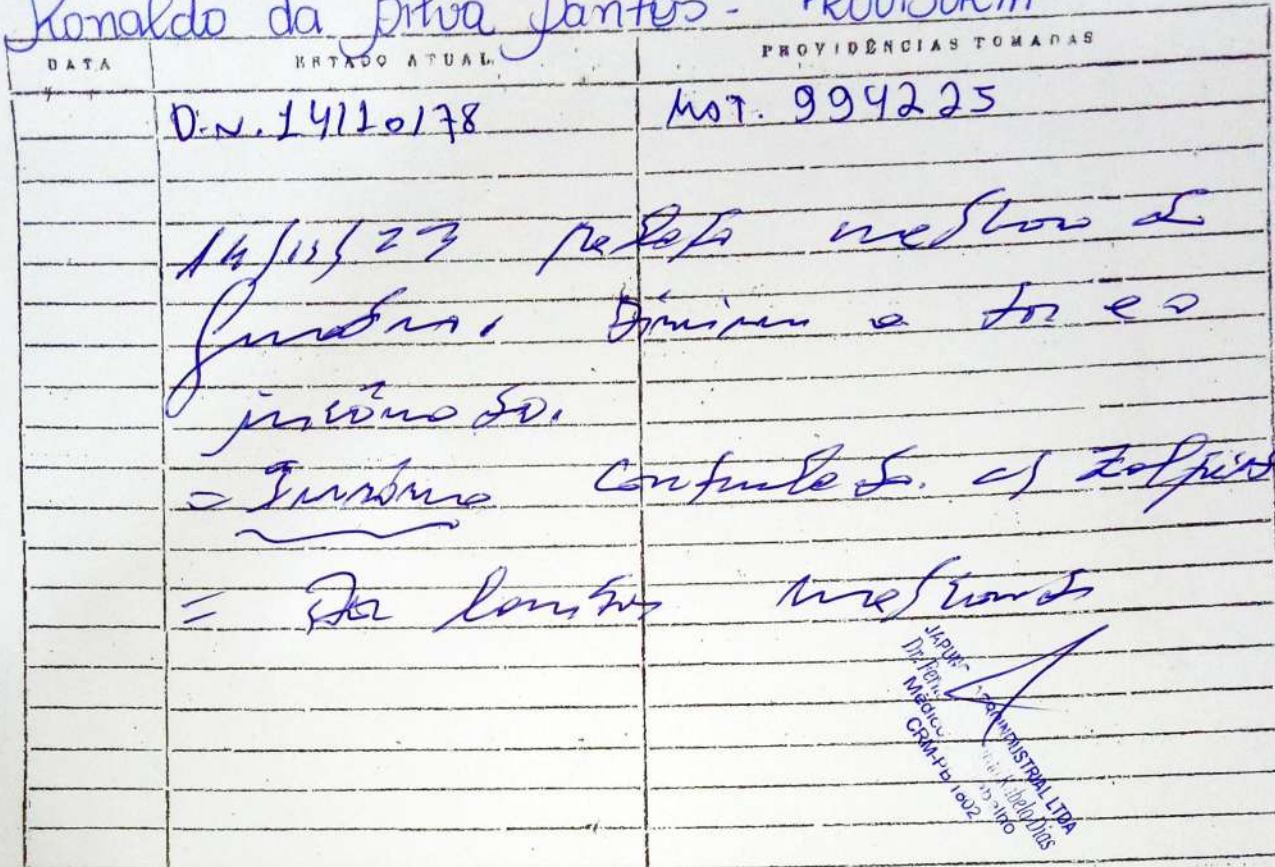 Ronaldo da Silva Santos - PROVISORIA
DATA ESTADO ATUAL PROVIDÊNCIAS TOMADAS
D.N. 14/10/78 MAT. 994225
14/11/23 relata melhora do
quadro. Diminui a dor e o
incômodo.
= Insônia controlada. c/ Zolpid
= Dor lombar melhorando
JAPUN AGROINDUSTRIAL LTDA
Dr. Rabelo Dias
Médico Trabalho
CRM-Pb 1602